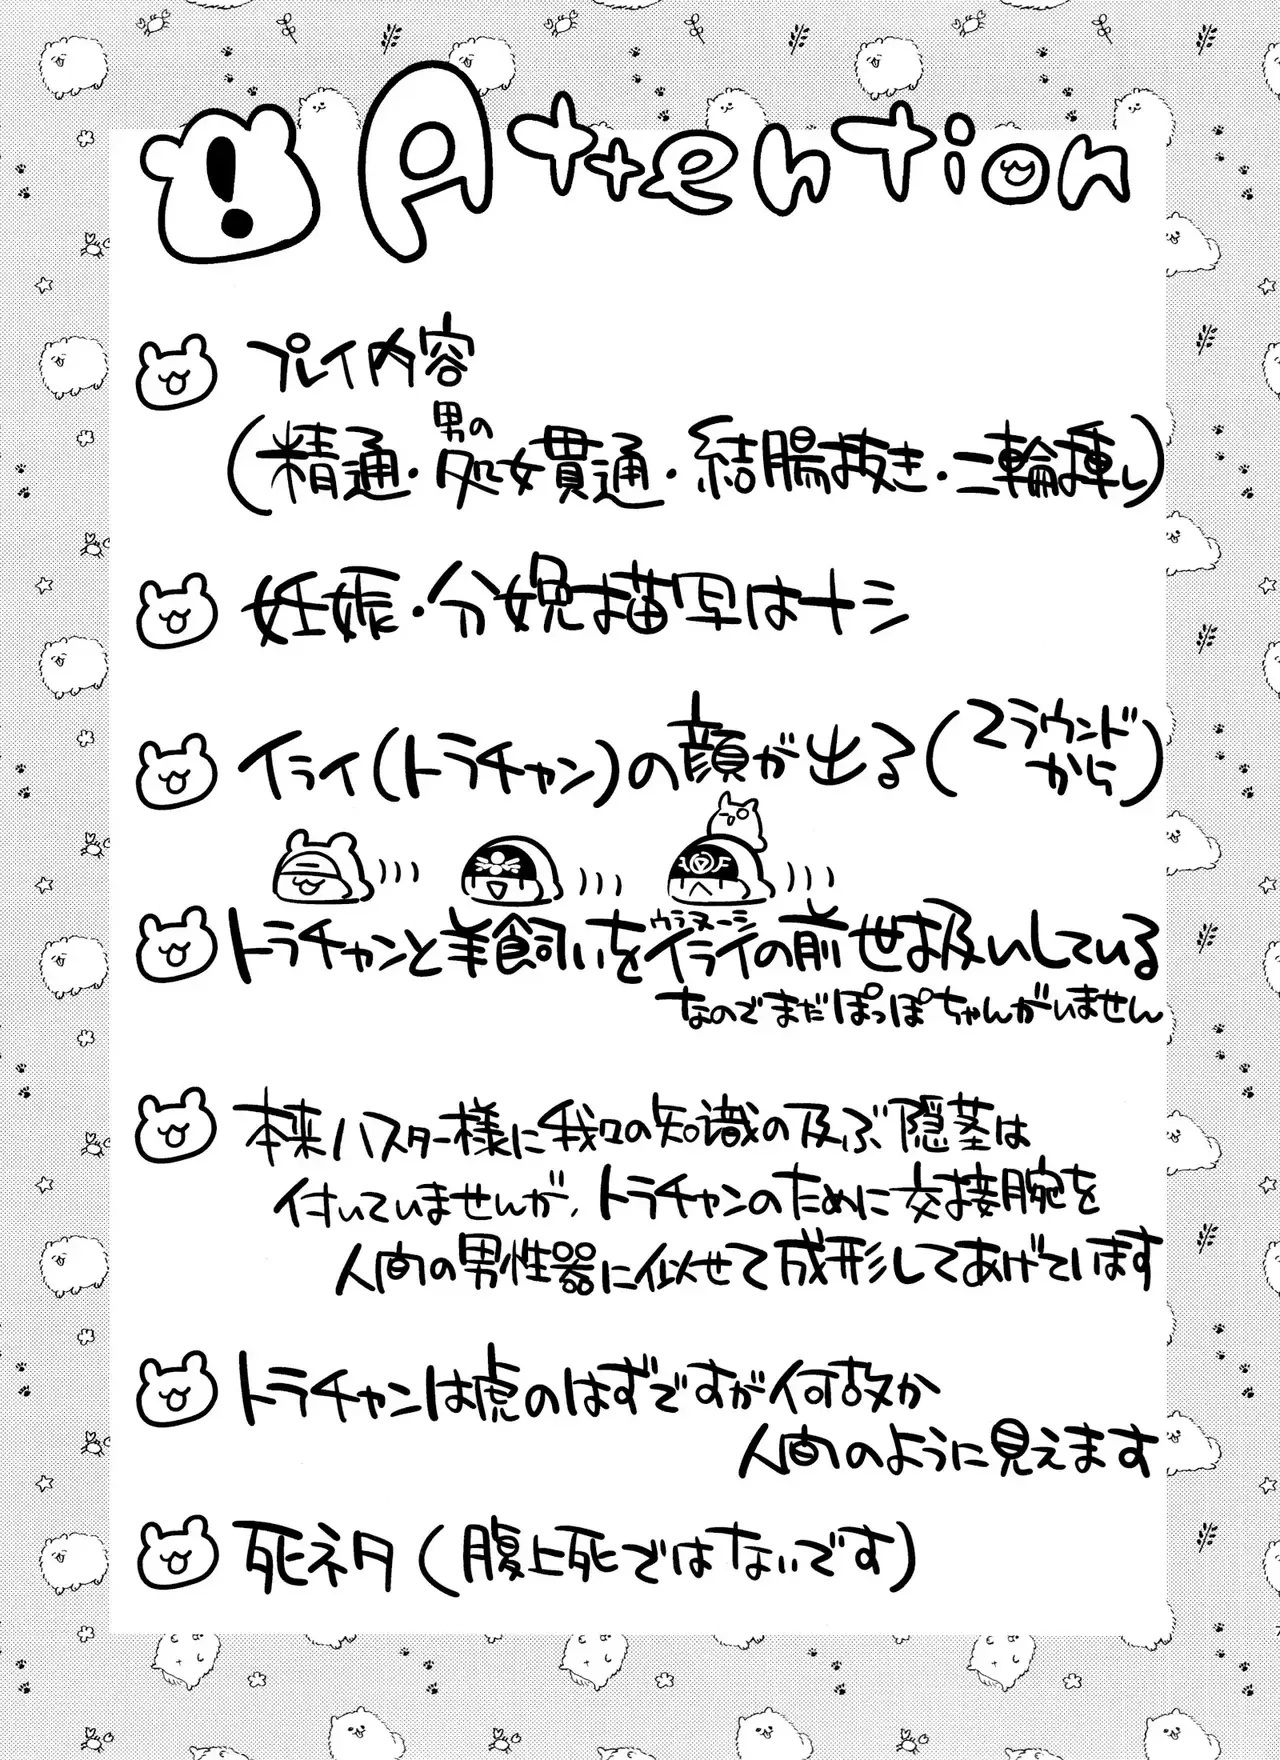 Attention
プレイ内容
(精通・男の処女貫通・結腸抜き・二輪挿し)
妊娠・分娩描写はナシ
イライ(トラチャン)の顔が出る(2ラウンドから)
トラチャンと羊飼いをイライの前世扱いしている
ウラヌーシ
なのでまだぽっぽちゃんがいません
本来ハスター様に我々の知識の及ぶ陰茎は
付いていませんが、トラチャンのために交接腕を
人間の男性器に似せて成形してあげています
トラチャンは虎のはずですが何故か
人間のように見えます
死ネタ(腹上死ではないです)